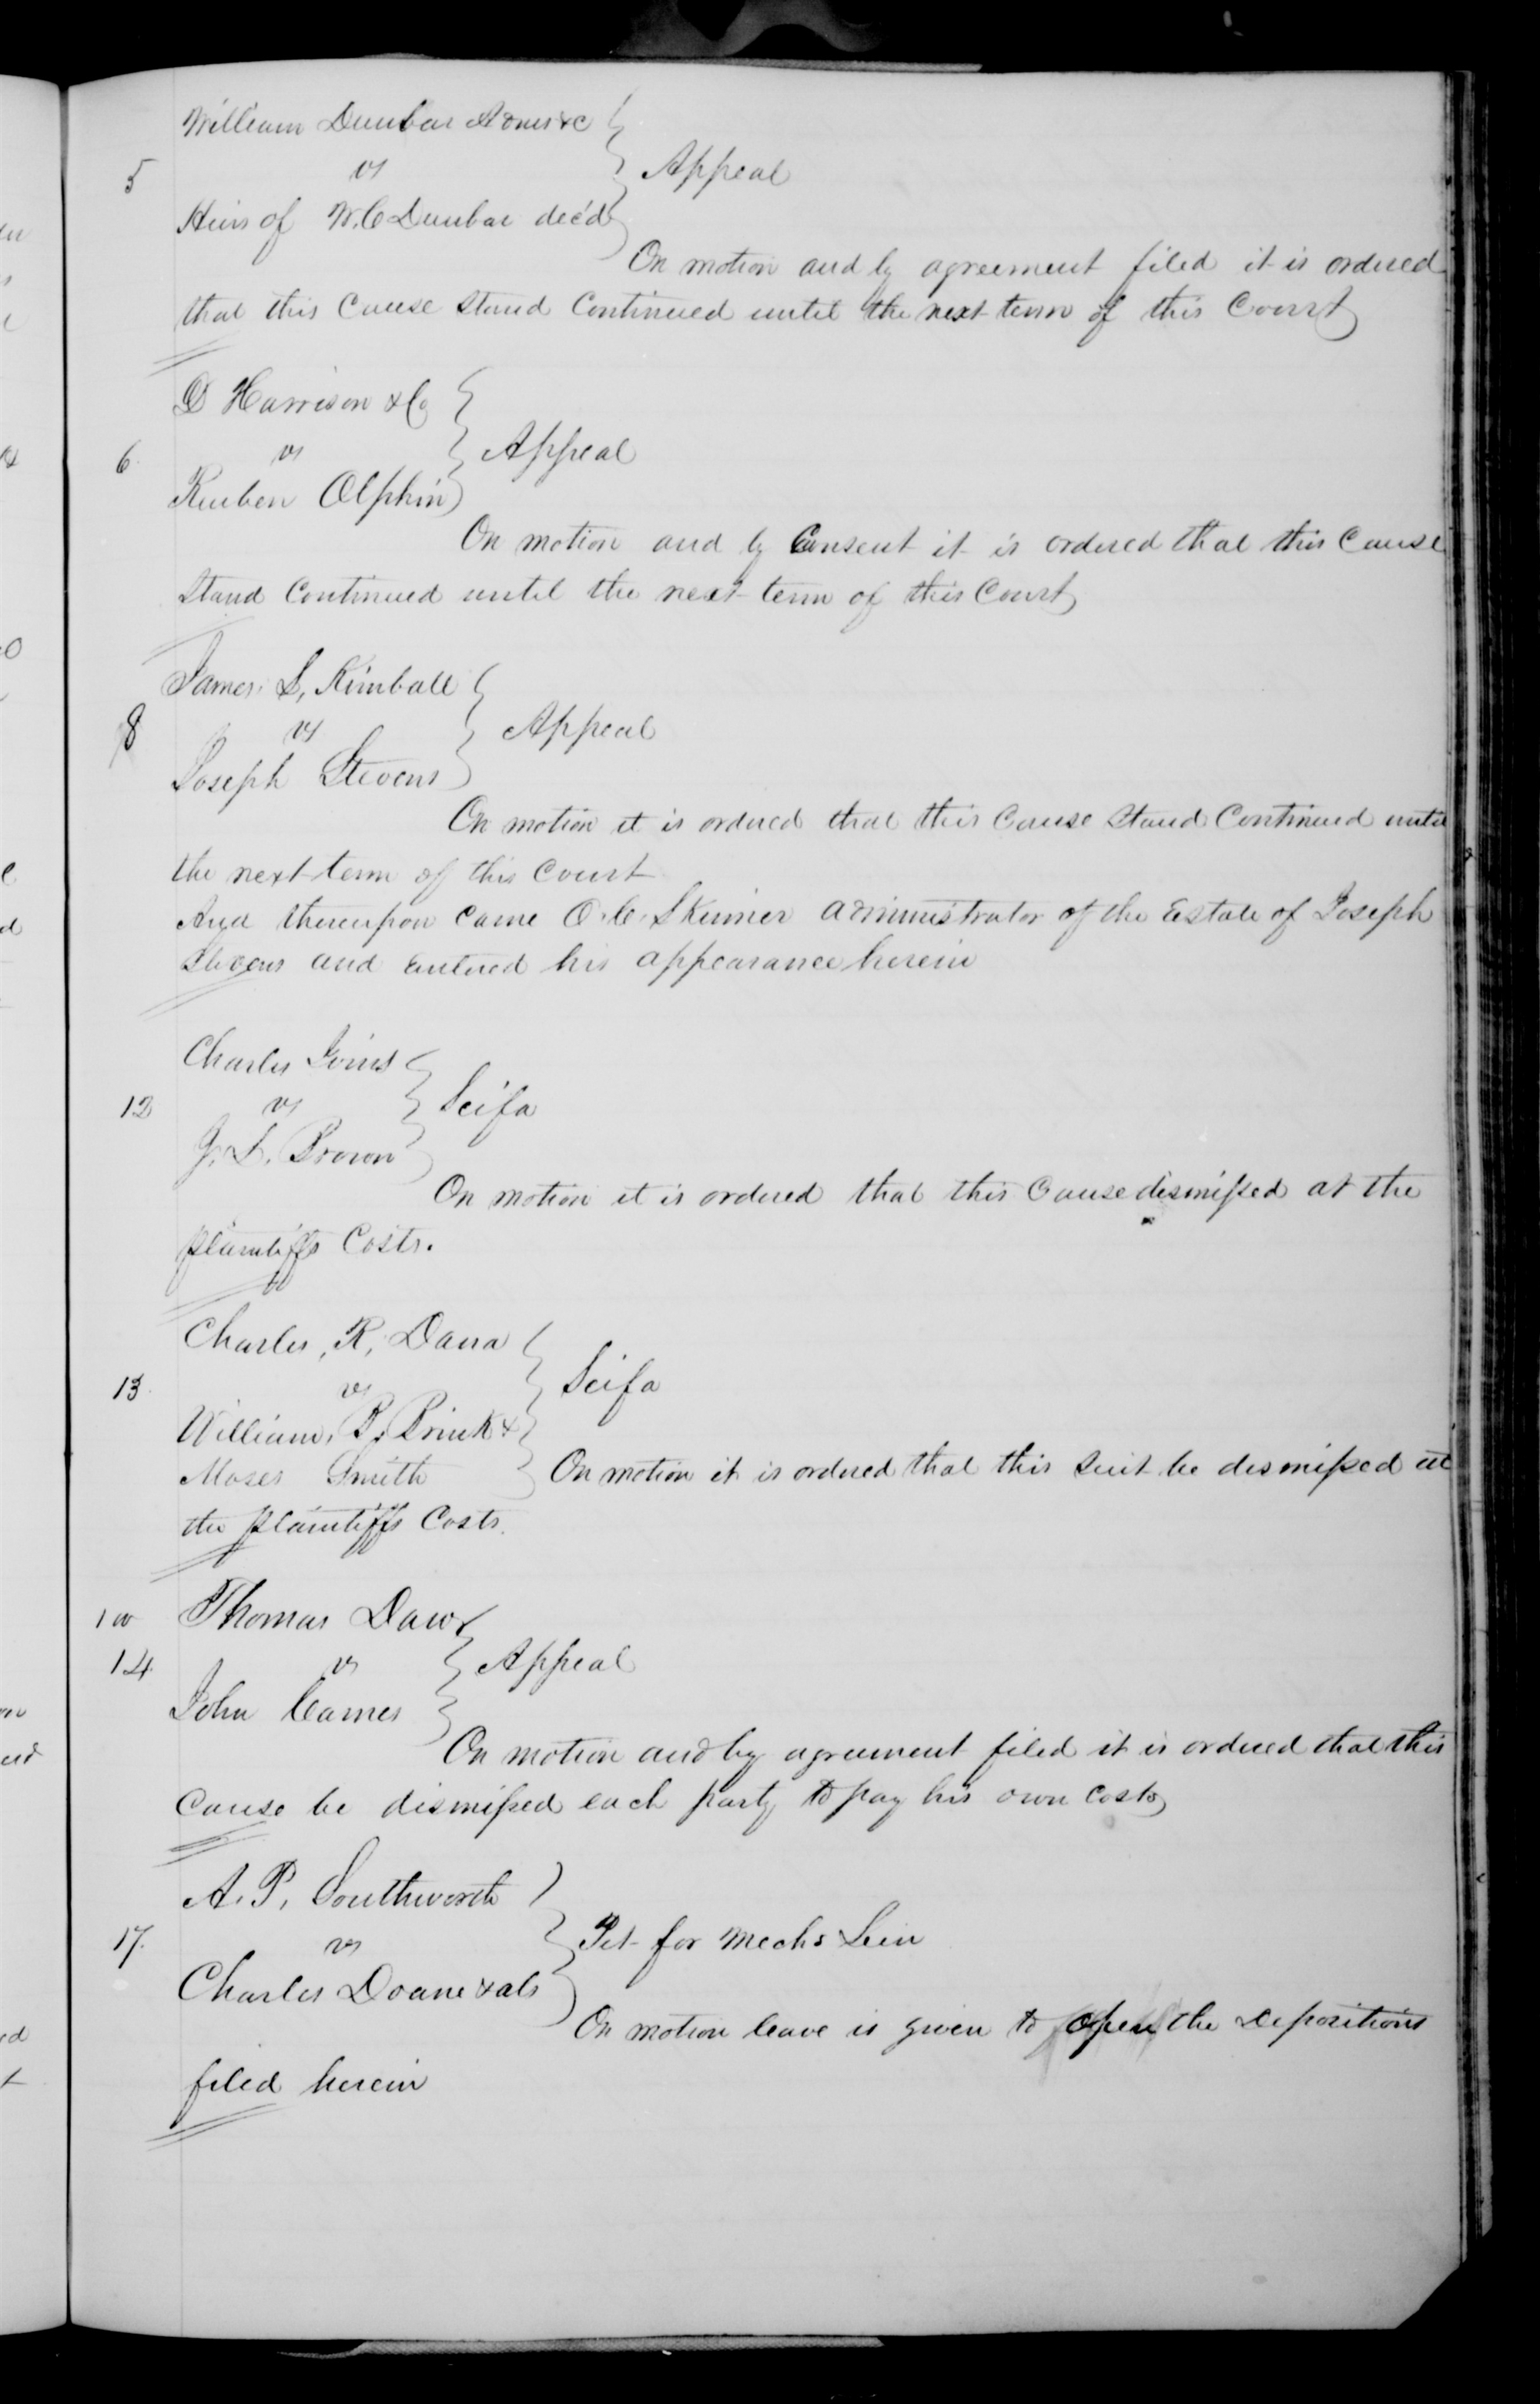 William Dunbar Admr &c
5 vs Appeal
Heirs of W. C Dunbar dec'd
On motion and by agreement filed it is ordered
that this Cause Stand Continued until the next term of this Court
D Harrison & Co
6 vs Appeal
Reuben Olphin
On motion and by Consent it is ordered that this Cause
Stand Continued until the next term of this Court
James S, Kimball
8 vs Appeal
Joseph Stevens
On motion it is ordered that this Cause Stand Continued until
the next term of this Court
And thereupon Came O. C. Skinner Administrator of the Estate of Joseph
Stevens and entered his appearance herein
Charles
12 vs Scifa
J. L. Brown
On motion it is ordered that this Cause dismissed at the
plaintiffs Costs.
Charles, R, Dana
13 vs Scifa
William, P, Brink &
Moses Smith On motion it is ordered that this Suit be dismissed at
the plaintiffs Costs.
Thomas Daw
14 vs Appeal
John Carnes
On motion and by agreement filed it is ordered that this
Cause be dismissed each party to pay his own Costs
A. P, Southworth
17. vs Pet for Mechs Lein
Charles Doane & als
On motion leave is given to open the Depositions
filed herein